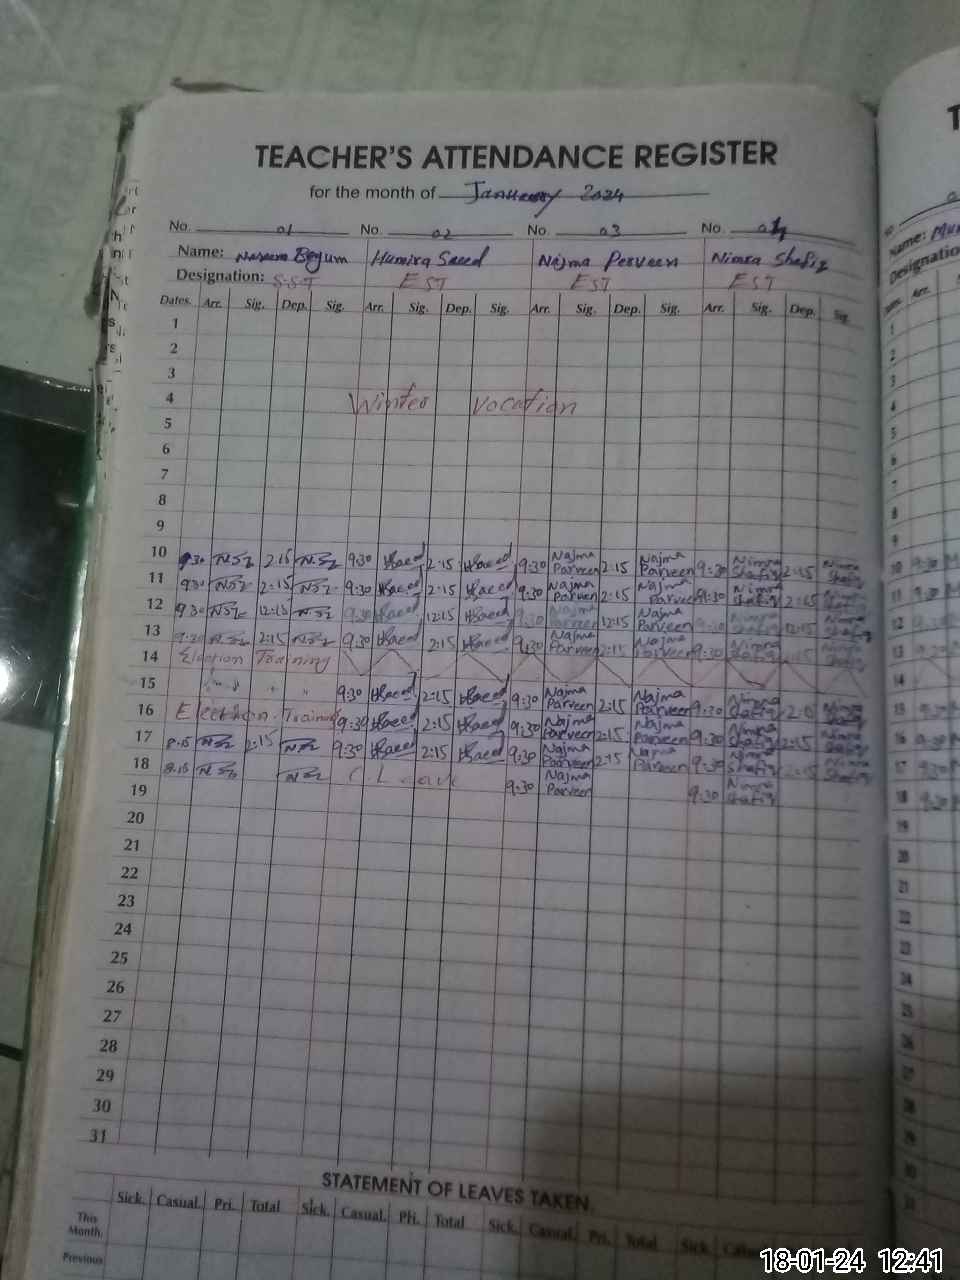 TEACHER'S ATTENDANCE REGISTER
for the month of January 2024
No. 01 No. 02 No. 03 No. 04
Name: Naseem Begum Humira Saeed Najma Perveen Nimra Shafiq
Designation: S.S.T EST EST EST
Dates. Arr. Sig. Dep. Sig. Arr. Sig. Dep. Sig. Arr. Sig. Dep. Sig. Arr. Sig. Dep. Sig.
1
2
3
4 Winter Vocation
5
6
7
8
9
10 9:30 2:15 9:30 HSaeed 2:15 HSaeed 9:30 Najma Parveen 2:15 Najma Parveen 9:30 Nimra Shafiq 2:15 Nimra Shafiq
11 9:30 2:15 9:30 HSaeed 2:15 HSaeed 9:30 Najma Parveen 2:15 Najma Parveen 9:30 Nimra Shafiq 2:15 Nimra Shafiq
12 9:30 12:15 9:30 HSaeed 12:15 HSaeed 9:30 Najma Parveen 12:15 Najma Parveen 9:30 Nimra Shafiq 12:15 Nimra Shafiq
13 9:30 2:15 9:30 HSaeed 2:15 HSaeed 9:30 Najma Parveen 2:15 Najma Parveen 9:30 Nimra Shafiq 2:15 Nimra Shafiq
14 Election Training
15 " " 9:30 HSaeed 2:15 HSaeed 9:30 Najma Parveen 2:15 Najma Parveen 9:30 Nimra Shafiq 2:15 Nimra Shafiq
16 Election Training 9:30 HSaeed 2:15 HSaeed 9:30 Najma Parveen 2:15 Najma Parveen 9:30 Nimra Shafiq 2:15 Nimra Shafiq
17 8:15 2:15 9:30 HSaeed 2:15 HSaeed 9:30 Najma Parveen 2:15 Najma Parveen 9:30 Nimra Shafiq 2:15 Nimra Shafiq
18 8:15 C.Leave 9:30 Najma Parveen 9:30 Nimra Shafiq
19
20
21
22
23
24
25
26
27
28
29
30
31
STATEMENT OF LEAVES TAKEN.
Sick. Casual. Pri. Total Sick. Casual. Pri. Total Sick. Casual. Pri. Total Sick.
This Month.
Previous
18-01-24 12:41